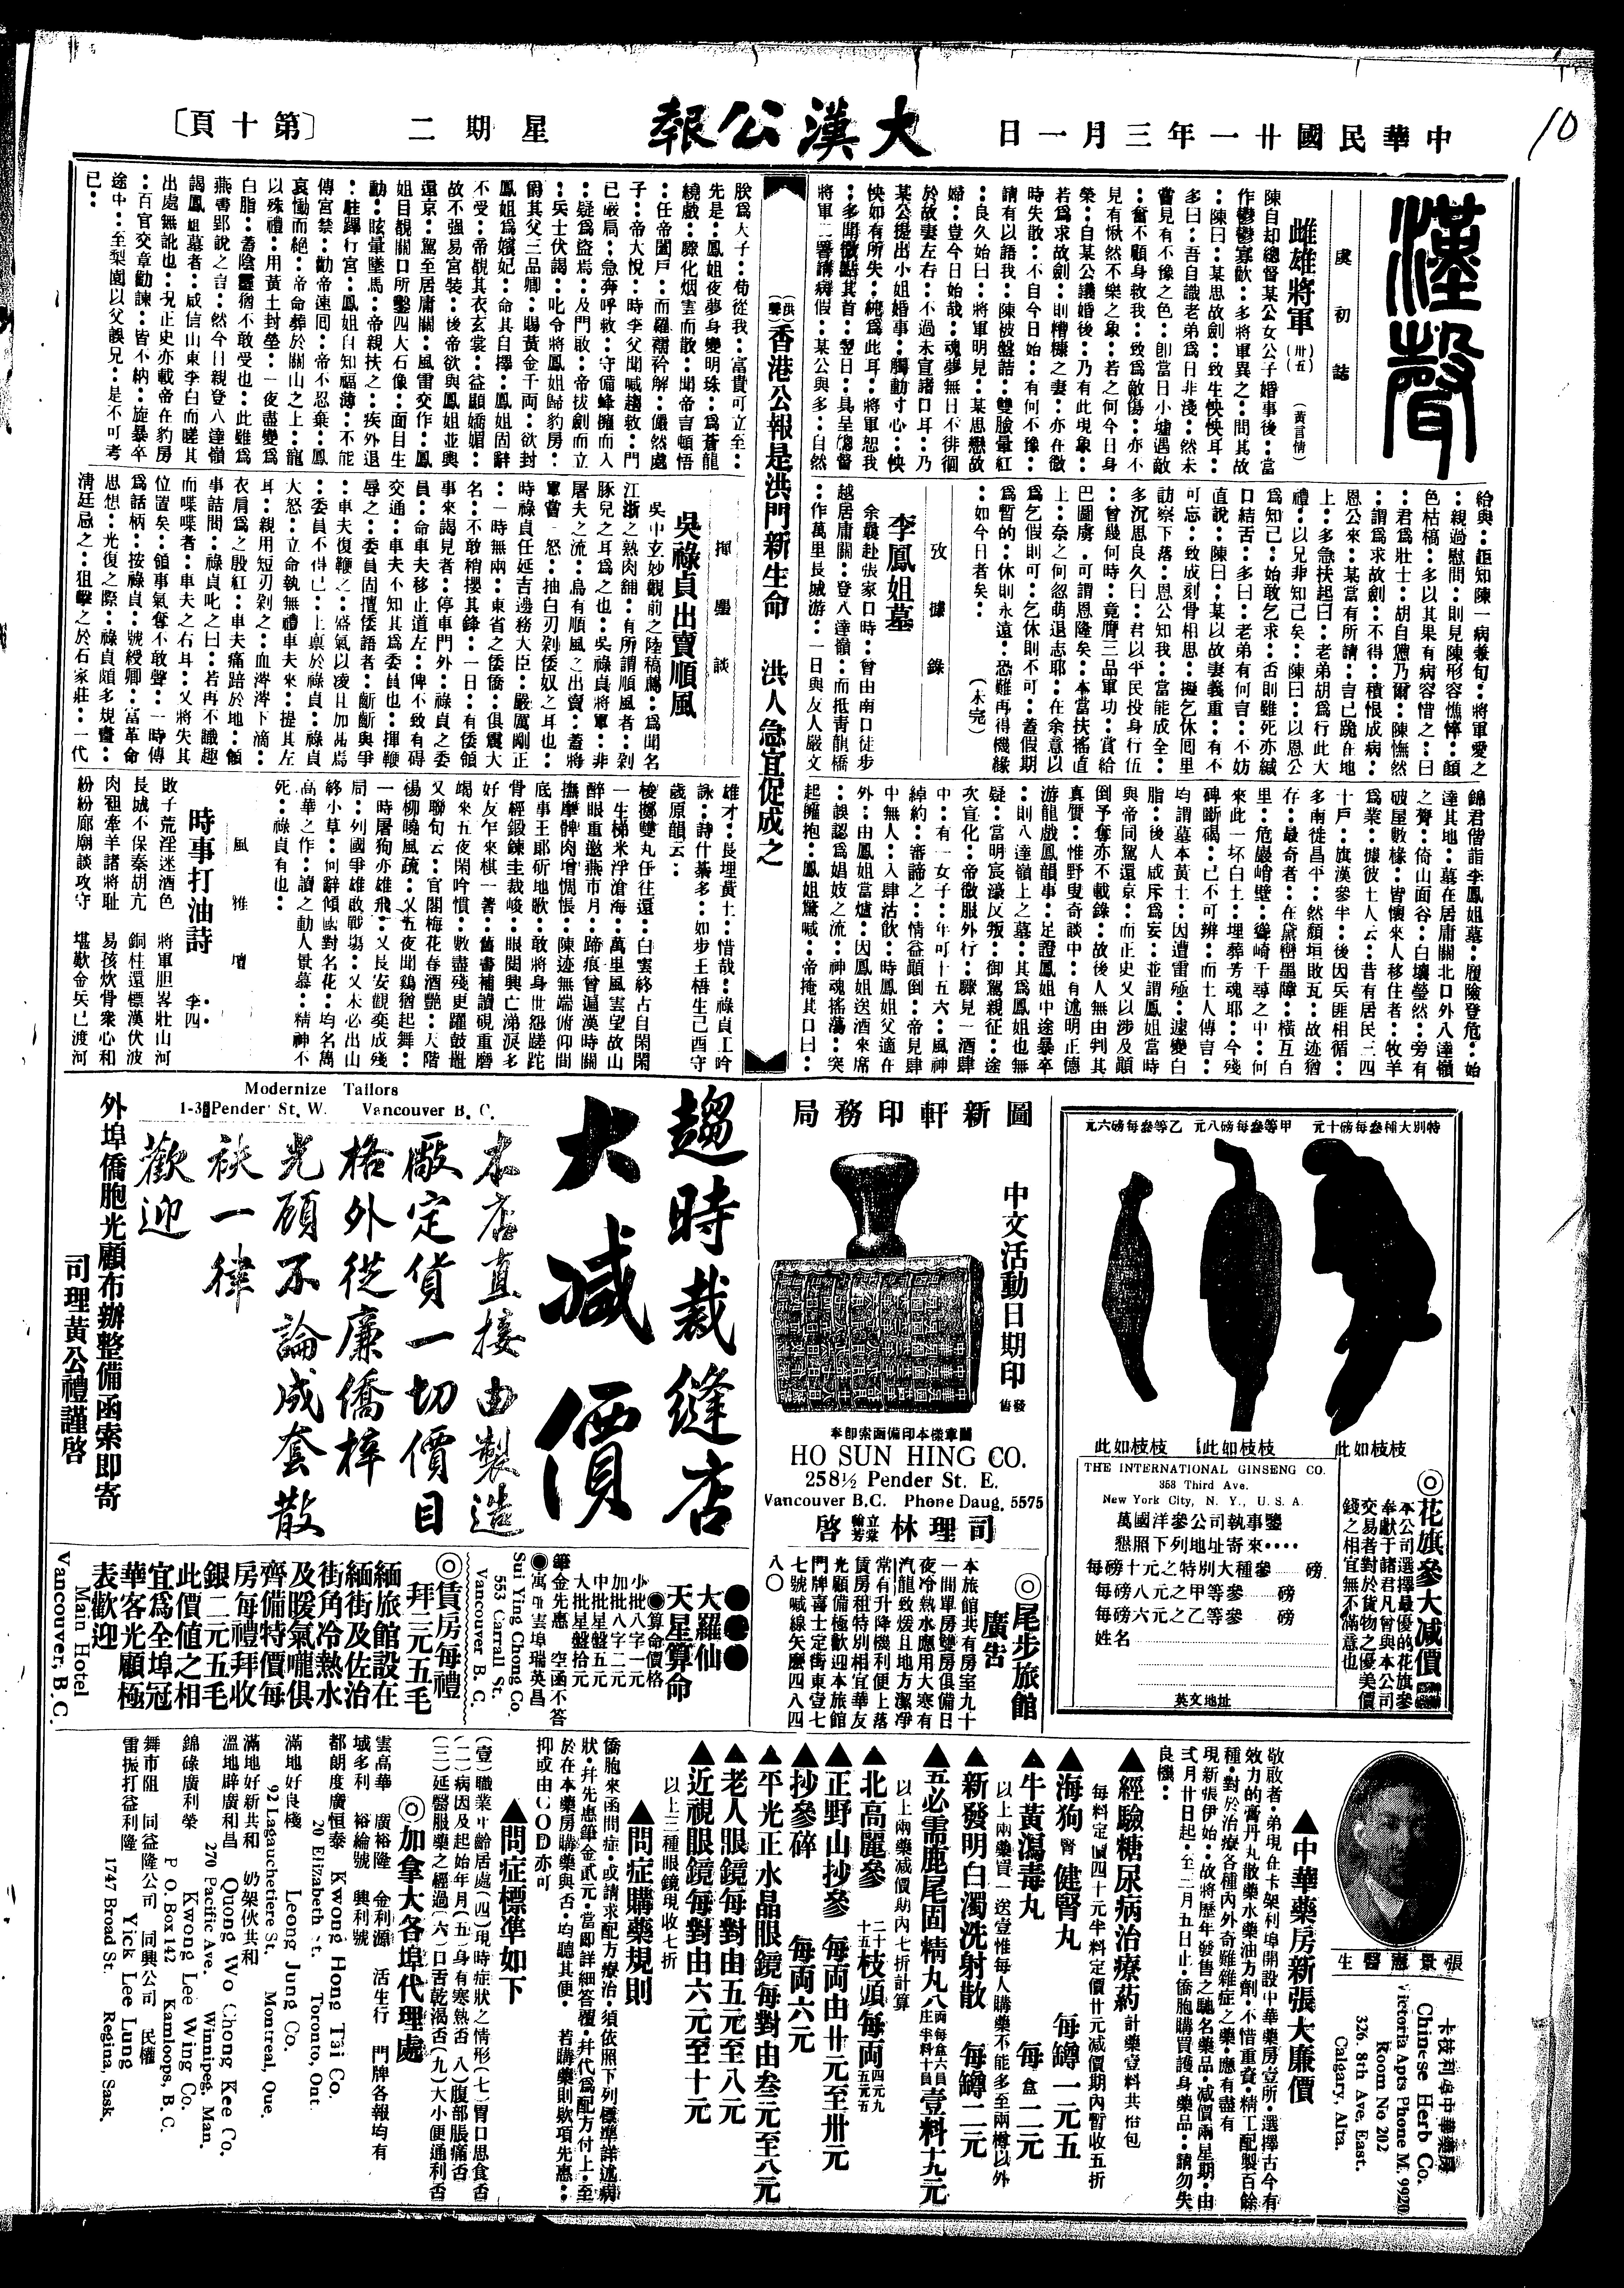 中華民國廿一年三月一日
大漢公報
星期二
〔第十頁〕
10
漢聲
虞初誌
雌雄將軍
(卅五)
(黃言情)
陳自却總督某公女公子婚事後：當
作鬱鬱寡歡：多將軍異之：間其故
：陳曰：某思故劍：致生怏怏耳：
多曰：吾自識老弟爲日非淺：然未
嘗見有不豫之色：卽當日小墟遇敵
：奮不顧身救我：致爲敵傷：亦不
見有愀然不樂之象：若之何今日身
榮：自某公議婚後：乃有此現象：
若爲求故劍：則糟糠之妻：亦在微
時失散：不自今日始：有何不豫：
請有以語我：陳被盤詰：雙臉暈紅
：良久始曰：將軍明見：某思戀故
婦：豈今日始哉：魂夢無日不徘徊
於故妻左右：不過未宣諸口耳：乃
某公提出小姐婚事：觸動寸心：怏
怏如有所失：純爲此耳：將軍恕我
：多聞微點其首：翌日：具呈總督
將軍二署請病假：某公與多：自然
給與：詎知陳一病兼旬：將軍愛之
：親過慰問：則見陳形容憔悴：顏
色枯槁：多以其果有病容惜之：曰
：君爲壯士：胡自戀乃爾：陳憮然
：謂爲求故劍：不得：積恨成病：
恩公來：某當有所請：言已跪在地
上：多急扶起曰：老弟胡爲行此大
禮：以兄非知己矣：陳曰：以恩公
爲知己：始敢乞求：否則雖死亦緘
口結舌：多曰：老弟有何言：不妨
直說：陳曰：某以故妻義重：有不
可忘：致成刻骨相思：擬乞休囘里
訪察下落：恩公知我：當能成全：
多沉思良久曰：君以平民投身行伍
：曾幾何時：竟膺三品軍功：賞給
巴圖虜，可謂恩隆矣：本當扶搖直
上：奈之何忽萌退志耶：在余意以
爲乞假則可：乞休則不可：蓋假期
爲暫的：休則永遠：恐難再得機緣
：如今日者矣：
(未完)
攷據錄
李鳳姐墓
余曩赴張家口時：曾由南口徒步
越居庸關：登八達嶺：而抵青龍橋
：作萬里長城游：一日與友人嚴文
錦君偕詣李鳳姐墓：履險登危：始
達其地：墓在居庸關北口外八達嶺
之脊：倚山面谷：白壤瑩然：旁有
破屋數椽：皆懷來人移住者：牧羊
爲業：據彼土人云：昔有居民三四
十戶：旗漢參半：後因兵匪相循：
多南徙昌平：然頹垣敗瓦：故迹猶
存：最奇者：在黛巒墨障：橫亙百
里：危巖峭壁：聳崎千尋之中：何
來此一坏白土：埋葬芳魂耶：今殘
碑斷碣：已不可辨：而土人傳言：
均謂墓本黄土：因遭雷殛：遽變白
脂：後人咸斥爲妄：並謂鳳姐當時
與帝同駕還京：而正史又以涉及顓
倒予奪亦不載錄：故後人無由判其
真贋：惟野叟奇談中：有述明正德
游龍戲鳳韻事：足證鳳姐中途暴卒
：則八達嶺上之墓：其爲鳳姐也無
疑：當明宸濠反叛：御駕親征：途
次宣化：帝微服外行：驟見一酒肆
中：有一女子：年可十五六：風神
綽約：審諦之：情益顚倒：帝見肆
中無人：入肆沽飲：時鳳姐父適在
外：由鳳姐當爐：因鳳姐送酒來席
：誤認爲娼妓之流：神魂搖蕩：突
起擁抱：鳳姐驚喊：帝掩其口曰：
(洪聲)香港公報是洪門新生命　洪人急宜促成之
朕爲天子：苟從我：富貴可立至：
先是：鳳姐夜夢身變明珠：爲蒼龍
繞戲：驟化烟雲而散：聞帝言頓悟
：任帝闔戶：而羅襦衿解：儼然處
子：帝大悅：時李父聞喊趨救：門
已嚴扃：急奔呼救：守備蜂擁而入
：疑爲盜焉：及門敢：帝拔劍而立
：兵士伏謁：叱令將鳳姐歸豹房：
爵其父三品卿：賜黃金千両：欲封
鳳姐爲嬪妃：命其自擇：鳳姐固辭
不受：帝覩其衣玄裳：益顯嬌媚：
故不強易宮裝：後帝欲與鳳姐並輿
還京：駕至居庸關：風雷交作：鳳
姐目覩關口所鑿四大石像：面目生
動：眩暈墜馬：帝親扶之：疾外退
：駐蹕行宮：鳳姐自知福薄：不能
傳宮禁：勸帝速囘：帝不忍棄：鳳
哀慟而絕：帝命葬於關山之上：寵
以殊禮：用黃土封塋：一夜盡變爲
白脂：蓋陰靈猶不敢受也：此雖爲
燕書郢說之言：然今日親登八達嶺
謁鳳姐墓者：咸信山東李白而嗟其
出處無訛也：況正史亦載帝在豹房
：百官交章勸諫：皆不納：旋暴卒
途中：至梨園以父誤兄：是不可考
已：
揮麈談
吳祿貞出賣順風
吳中玄妙觀前之陸稿薦：爲聞名
江浙之熟肉舖：有所謂順風者：剁
豚兒之耳爲之也：吳祿貞將軍：非
屠夫之流：烏有順風之出賣：蓋將
軍嘗一怒：抽白刃剁倭奴之耳也：
時祿貞任延吉邊務大臣：嚴厲剛正
：一時無兩：東省之倭僑：俱震大
名：不敢稍攖其鋒：一日：有倭領
事來謁見者：停車門外：祿貞之委
員：命車夫移止道左：俾不致有碍
交通：車夫不知其爲委員也：揮鞭
辱之：委員固擅倭語者：斷斷與爭
：車夫復鞭之：盛氣以凌且加甚焉
：委員不得已：上禀於祿貞：祿貞
大怒：立命執無禮車夫來：提其左
耳：親用短刃剁之：血涔涔下滴：
衣肩爲之殷紅：車夫痛踣於地：領
事詰問：祿貞叱之曰：若再不識趣
而喋喋者：車夫之右耳：又將失其
位置矣：領事氣奪不敢聲：一時傳
爲話柄：按祿貞：號綬卿：富革命
思想：光復之際：祿貞頗多規畫：
淸廷忌之：狙擊之於石家莊：一代
雄才：長埋黃土：惜哉：祿貞工吟
詠：詩什綦多：如步王梧生己酉守
歲原韻云：
梭擲雙丸任往還：白雲終占自閑閑
一生梯米浮滄海：萬里風雲望故山
醉眼重邀燕市月：蹄痕曾遍漢時關
撫摩髀肉增惆悵：陳迹無端俯仰間
底事王郎斫地歌：敢將身世怨蹉跎
骨經鍛鍊圭裁峻：眼閱興亡涕淚多
好友乍來棋一著：舊書補讀硯重磨
竭來五夜閑吟慣：數盡殘更躍鼓鼉
又聯句云：官閣梅花春酒艷：天階
楊柳曉風疏：又五夜聞鷄猶起舞：
一時屠狗亦雄飛：又長安觀奕成殘
局：列國爭雄啟戰塲：又未必出山
終小草：何辭傾國對名花：均名萬
高華之作：讀之動人景慕：精神不
死：祿貞有也：
風雅壇
時事打油詩
李四
敗子荒淫迷酒色　將軍胆畧壯山河
長城不保秦胡亢　銅柱還標漢伏波
肉袒牽羊諸將耻　易孩炊骨衆心和
紛紛廊廟談攻守　堪歎金兵已渡河
特別大種參每磅十元　甲等參每磅八元　乙等參每磅六元
枝枝如此　枝枝如此　枝枝如此
◎花旗參大减價
本公司選擇最優的花旗參
奉獻于諸君凡曾與本公司
交易者對於貨物之優美價
錢之相宜無不滿意也
THE INTERNATIONAL GINSENG CO.
358 Third Ave.
New York City, N. Y., U. S. A.
萬國洋參公司執事鑒
懇照下列地址寄來····
每磅十元之特別大種參……磅
每磅八元之甲等參……磅
每磅六元之乙等參……磅
姓名
英文地址
圖新軒印務局
中文活動日期印
發售
圖章樣本印備函索卽奉
HO SUN HING CO.
258½ Pender St. E.
Vancouver B.C. Phone Daug. 5575
司理林立業翰芳啓
◎尾步旅館廣告
本旅館共有房室九十
一間單房雙房俱備日
夜冷熱水應用大寒有
汽龍致煖且地方潔淨
常有升降機利便上落
賃房租特別相宜華友
光顧備極歡迎本旅館
門牌喜士定街東壹七
七號喊線矢麽四八四
八〇
趨時裁縫店
大减價
本店直接由製造
厰定貨一切價目
格外從廉僑梓
光顧不論成套散
袂一律
歡迎
Modernize Tailors
Pender St. W. Vancouver B. C.
外埠僑胞光顧布辦整備函索即寄
司理黃公禮謹啓
大羅仙
天星算命
◉算命價格
小批八字一元
加批八字二元
中批星盤五元
大批星盤拾元
筆金先惠　空函不答
◉寓雲埠瑞英昌
Sui Ying Chong Co.
553 Carrall St.
Vancouver B. C.
◎賃房每禮
拜三元五毛
緬旅館設在
緬街及佐治
街角冷熱水
及暖氣嚨俱
齊備特價每
房每禮拜收
銀二元五毛
此價值之相
宜爲全埠冠
華客光顧極
表歡迎
Main Hotel
Vancouver, B. C.
張景憲醫生
卡技利埠中華藥房
Chinese Herb Co.
Victoria Apts Phone M. 9920
Room No 202
326. 8th Ave. East.
Calgary, Alta.
▲中華藥房新張大廉價
敬啟者·弟現在卡架利埠開設中華藥房壹所·選擇古今有
效力的膏丹丸散藥水藥油方劑·不惜重資·精工配製百餘
種·對於治療各種內外奇難雜症之藥·應有盡有
現新張伊始·故將歷年發售之馳名藥品·减價兩星期·由
弍月廿日起·至三月五日止·僑胞購買護身藥品：請勿失
良機：
▲經驗糖尿病治療葯　計藥壹料共佰包
每料定價四十元半料定價廿元减價期內暫收五折
▲海狗腎健腎丸　每罇一元五
▲牛黃瀉毒丸　每盒二元
以上兩藥買一送壹惟每人購藥不能多至兩樽以外
▲新發明白濁洗射散　每罇二元
▲五必需鹿尾固精丸　壹料十九元
以上兩藥减價期內七折計算
▲北高麗參　枝頭每両
▲正野山抄參　每両由廿元至卅元
▲抄參碎　每両六元
▲平光正水晶眼鏡每對由叁元至八元
▲老人眼鏡每對由五元至八元
▲近視眼鏡每對由六元至十元
以上三種眼鏡現收七折
▲問症購藥規則
僑胞來函問症·或請求配方療治·須依照下列標準詳述病
狀·幷先惠筆金弍元·當即詳細答覆·幷代爲配方付上·至
於在本藥房購藥與否·均聽其便·若購藥則欵項先惠：
抑或由COD亦可
▲問症標準如下
(壹)職業年齡居處(四)現時症狀之情形(七)胃口思食否
(二)病因及起始年月(五)身有寒熱否(八)腹部脹痛否
(三)延醫服藥之經過(六)口舌乾渴否(九)大小便通利否
◎加拿大各埠代理處
雲高華　廣裕隆　金利源　活生行　門牌各報均有
域多利　裕綸號　興利號
都朗度廣恒泰　Kwong Hong Tai Co.
20 Elizabeth St. Toronto, Ont.
滿地好良棧　Leong Jung Co.
92 Lagauchetiere St. Montreal, Que.
滿地好新共和　奶架伙共和
溫地辟廣和昌　Quong Wo Chong Kee Co.
270 Pacific Ave. Winnipeg, Man.
錦碌廣利榮　Kwong Lee Wing Co.
P. O. Box 142 Kamloops, B. C.
舞市阻　同益隆公司　同興公司　民權
雷振打益利隆　Yick Lee Lung
1747 Broad St. Regina, Sask.